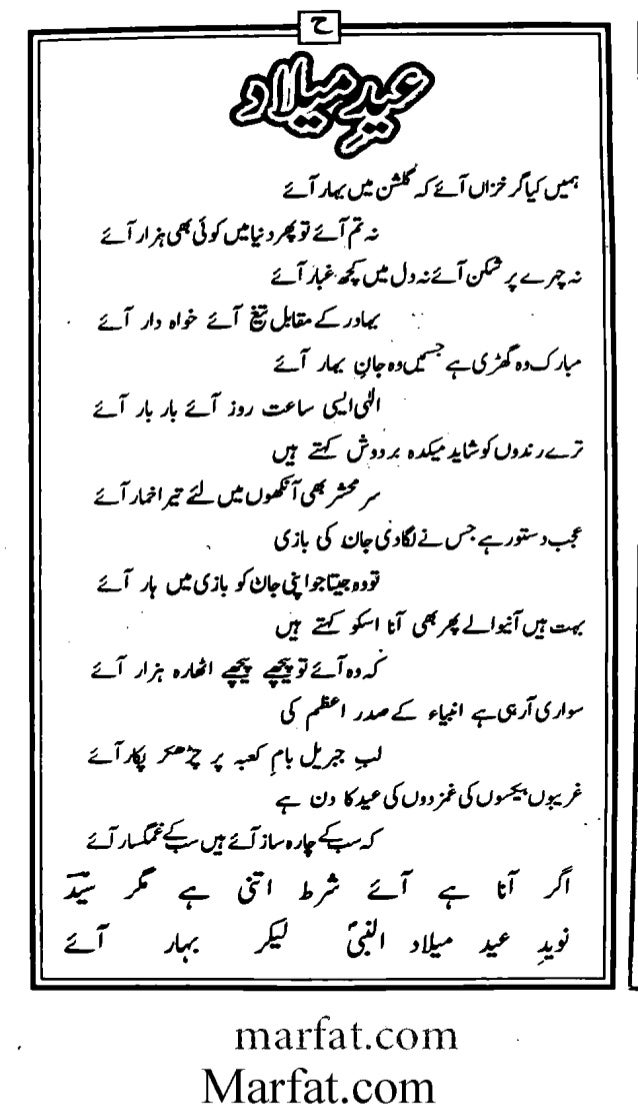 ح
عیدِ میلاد
ہمیں کیا گر خزاں آئے کہ گلشن میں بہار آئے
نہ تم آئے تو پھر دنیا میں کوئی بھی ہزار آئے
نہ چہرے پر شکن آئے نہ دل میں کچھ غبار آئے
بہادر کے مقابل تیغ آئے خواہ دار آئے
مبارک وہ گھڑی ہے جسمیں وہ جانِ بہار آئے
الٰہی ایسی ساعت روز آئے بار بار آئے
ترے رندوں کو شاید میکدہ بردوش کہتے ہیں
سرِ محشر بھی آنکھوں میں لئے تیرا خمار آئے
عجب دستور ہے جس نے لگا دی جان کی بازی
تو وہ جیتا جو اپنی جان کو بازی میں ہار آئے
بہت ہیں آنیوالے پھر بھی آنا اسکو کہتے ہیں
کہ وہ آئے تو پیچھے پیچھے اٹھارہ ہزار آئے
سواری آرہی ہے انبیاء کے صدر اعظم کی
لبِ جبریل بامِ کعبہ پر چڑھکر پکار آئے
غریبوں بیکسوں کی غمزدوں کی عید کا دن ہے
کہ سب کے چارہ ساز آئے ہیں سب کے غمگسار آئے
اگر آنا ہے آئے شرط اتنی ہے مگر سیّدؔ
نویدِ عید میلاد النبیؐ لیکر بہار آئے
marfat.com
Marfat.com